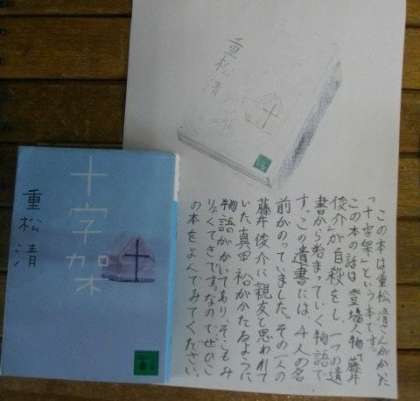 十字架
重松清
重松清
この本は重松清さんがかいた
「十字架」という本です。
この本の話は、登場人物「藤井
俊介」が自殺をし、一つの遺
書から始まっていく物語で
す。この遺書には、4人の名
前がのっていました。その一人の
藤井俊介に親友と思われて
いた真田裕がかたるように
物語がかいてありそこもみ
りょくてきです。なのでぜひこ
の本をよんでみてください。